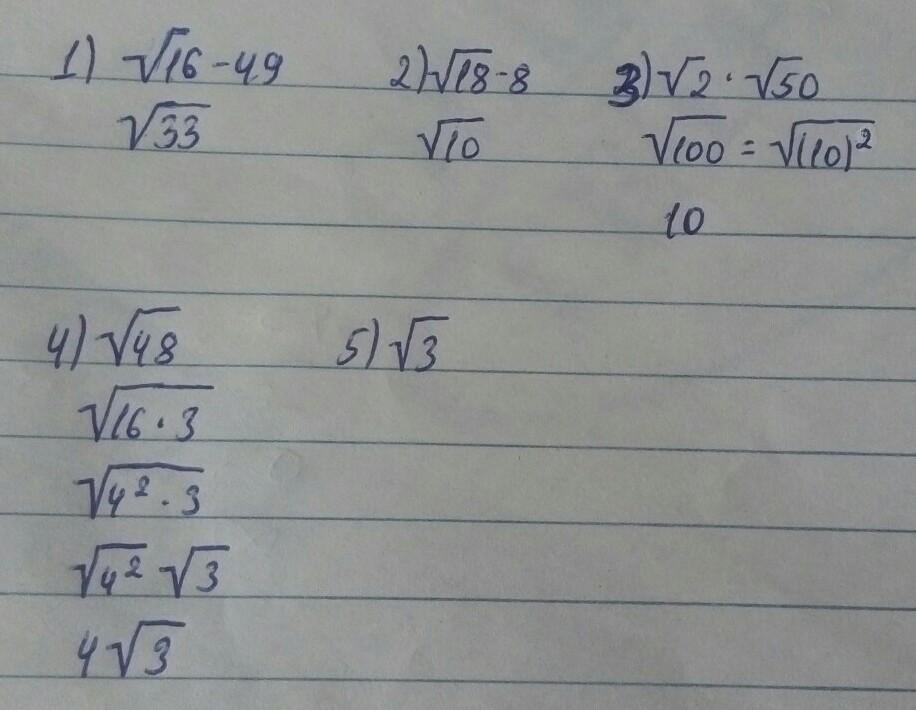 1) √16 - 49
√33
2) √18 - 8
√10
3) √2 · √50
√100 = √(10)²
10
4) √48
√16 · 3
√4² · 3
√4² √3
4√3
5) √3